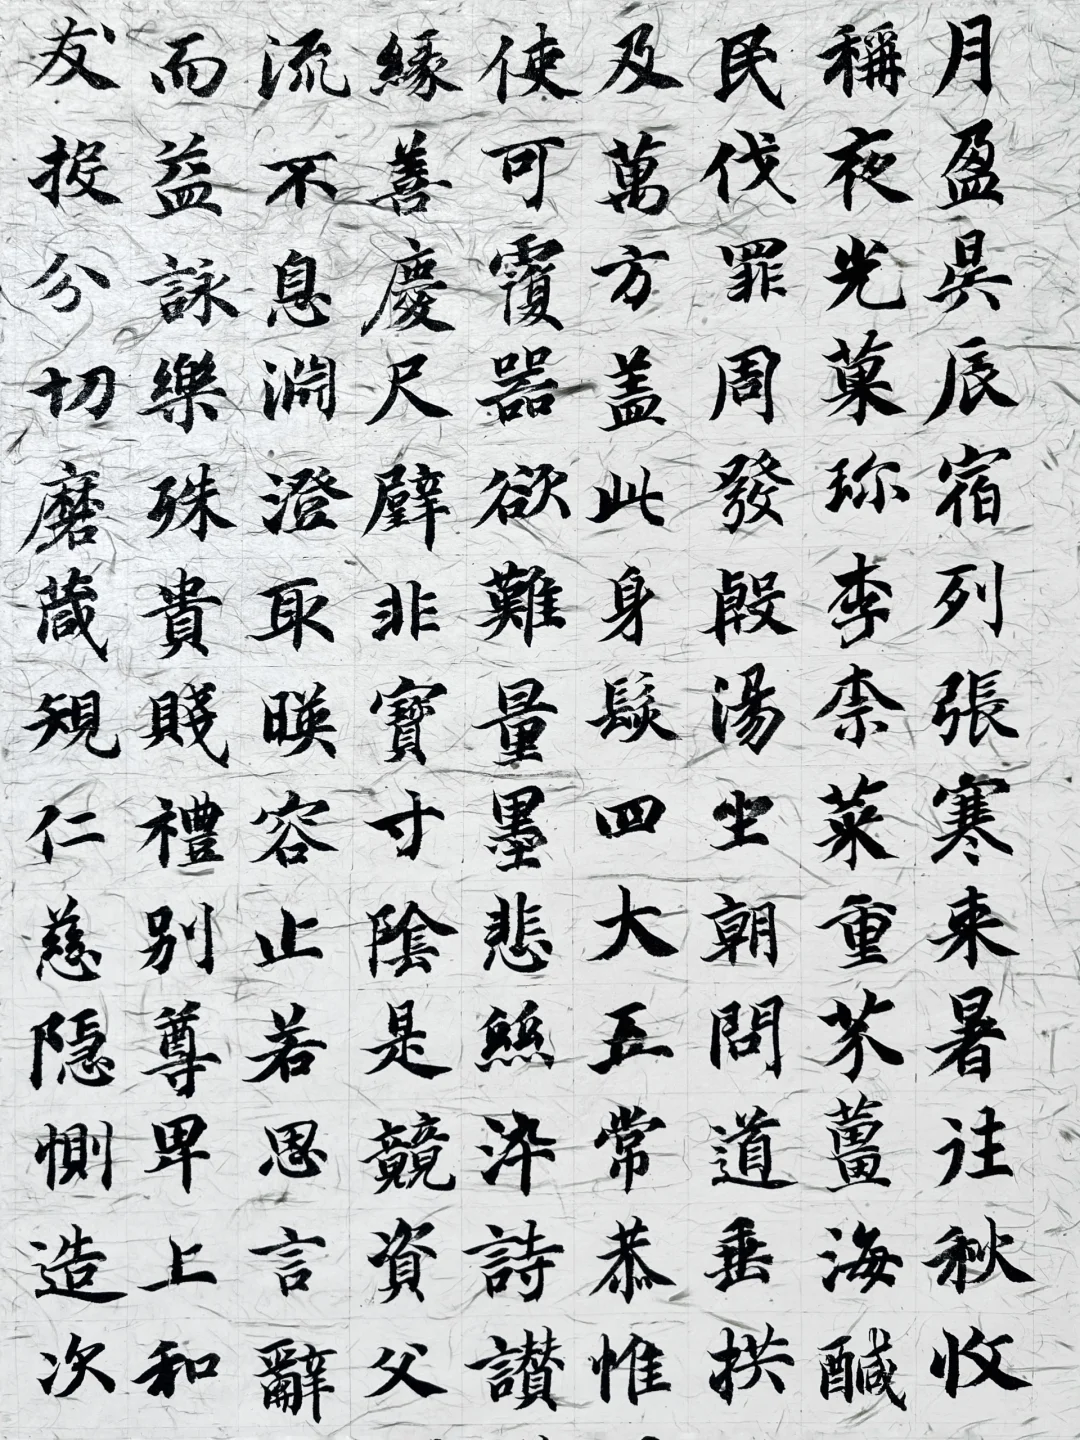 月盈昃辰宿列張寒来暑往秋收
稱夜光菓珎李柰菜重芥薑海醎
民伐罪周發殷湯坐朝問道垂拱
及萬方盖此身髮四大五常恭惟
使可覆器欲難量墨悲絲染詩讚
緣善慶尺璧非寶寸陰是競資父
流不息淵澄取暎容止若思言辭
而益詠樂殊貴賤禮別尊卑上和
友投分切磨箴規仁慈隱惻造次